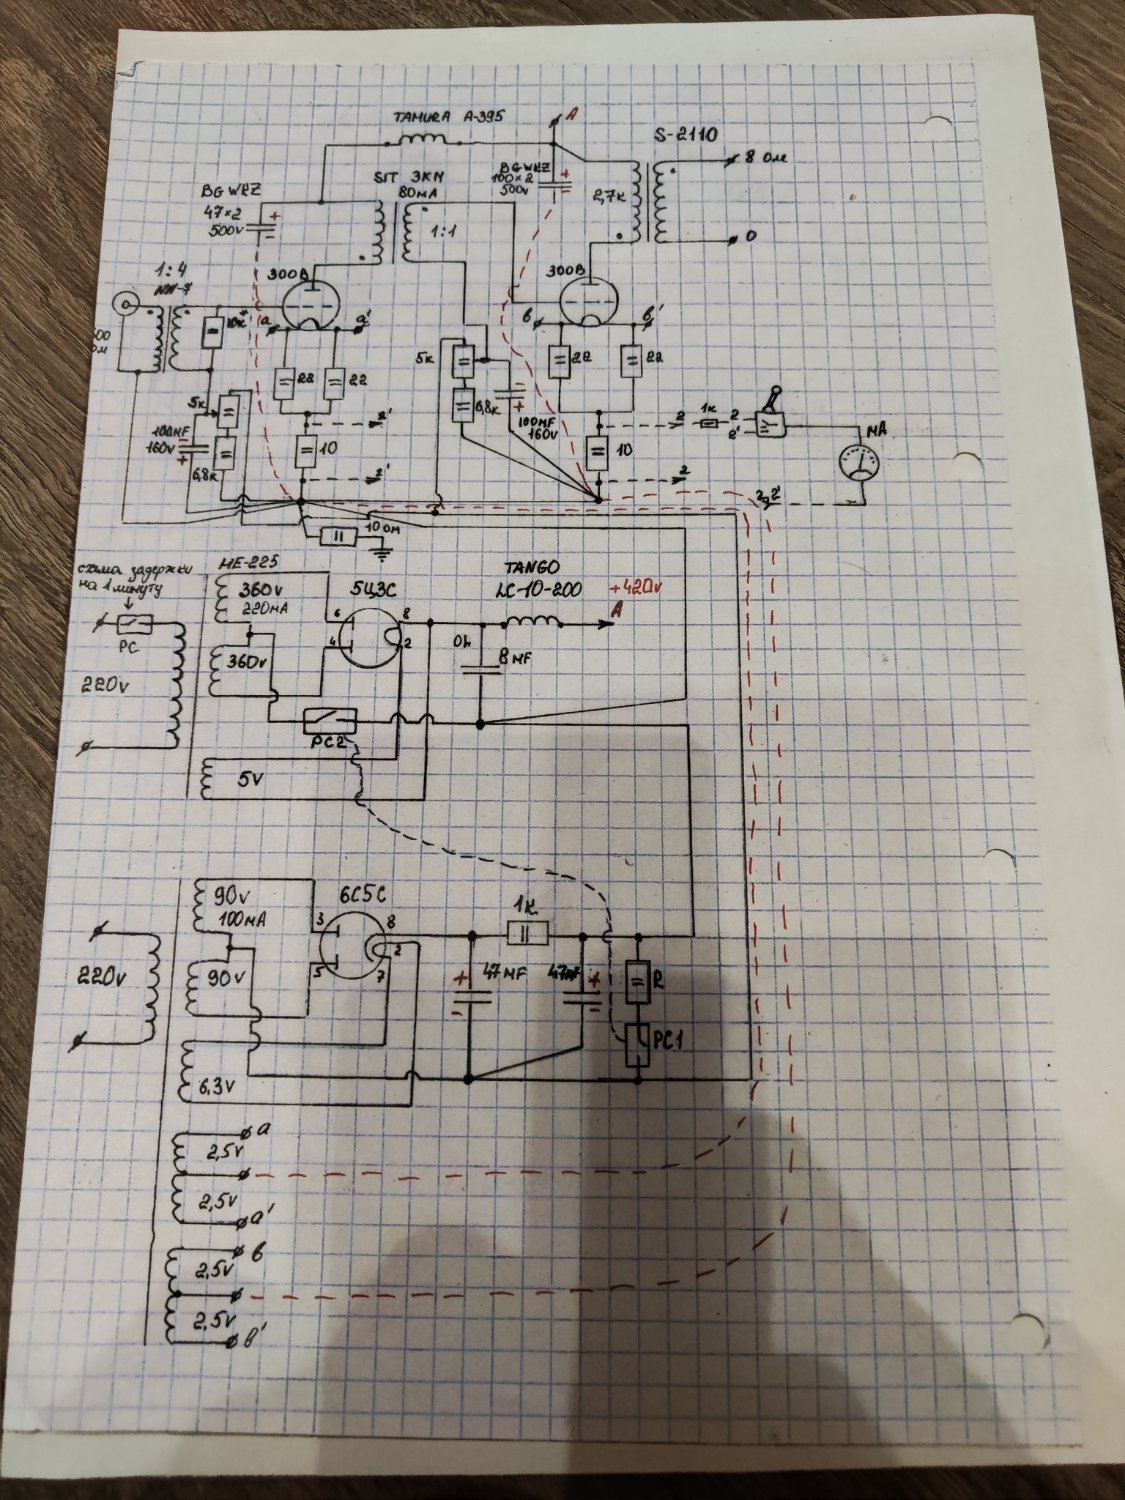 TAMURA A-395
A
S-2110
8 ом
BG WKZ
47×2
500v
SIT 3KN
80мA
BG WKZ
100×2
500v
2,7к
1:1
0
1:4
300B
300B
10к
a
a'
в
в'
22
22
5к
22
22
5к
100MF
160v
6,8к
6,8к
100MF
160v
10
2'
10
2
1к
2
2'
MA
2'
2
2,2'
10 ом
схема задержки
на 1 минуту
PC
220v
ME-225
360v
220мA
360v
5Ц3С
6
4
8
2
TANGO
LC-10-200
+420v
A
8 MF
PC2
5v
90v
100мA
90v
220v
6С5С
3
5
8
2
7
1к
47MF
47MF
R
PC1
6,3v
a
2,5v
2,5v
a'
в
2,5v
2,5v
в'